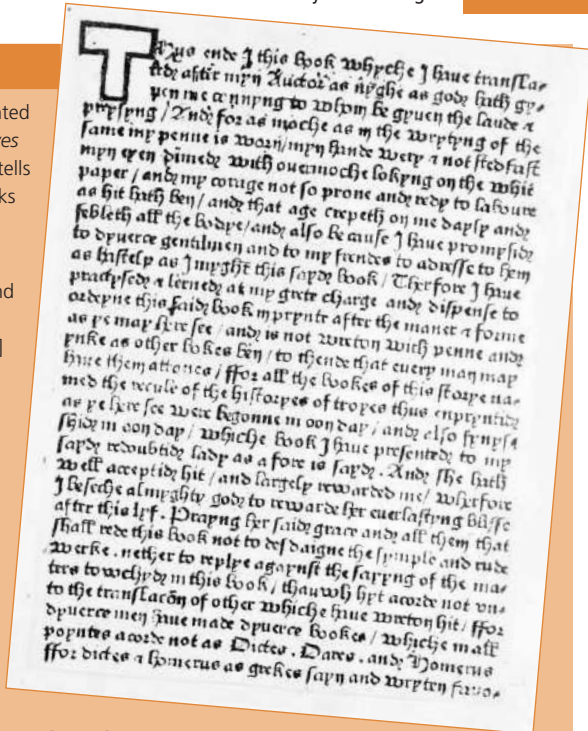 ated
ves
tells
ks
nd
]
Thus ende I this book whyche I haue transla-
ted after myn Auctor as nyghe as god hath gy-
uen me connyng to whom be gyuen the laude &
preysyng / And for as moche as in the wrytyng of the
same my penne is worn / myn hande wery & not stedfast
myn eyen dimed with ouermoche lokyng on the whit
paper / and my corage not so prone and redy to laboure
as hit hath ben / and that age crepeth on me dayly and
febleth all the bodye / and also be cause I haue promysid
to dyuerce gentilmen and to my frendes to adresse to hem
as hastely as I myght this sayd book / Therfore I haue
practysed & lerned at my grete charge and dispense to
ordeyne this said book in prynte after the maner & forme
as ye may here see / and is not wreton with penne and
ynke as other bokes ben / to thende that every man may
haue them attones / ffor all the bookes of this storye na-
med the recule of the historyes of troyes thus enpryntid
as ye here see were begonne in oon day / and also fynys-
shid in oon day / whiche book I haue presented to my
sayd redoubtid lady as a fore is sayd. And she hath
well acceptid hit / and largely rewarded me / wherfore
I beseche almyghty god to rewarde her euerlastyng blisse
after this lyf. Prayng her said grace and all them that
shall rede this book not to desdaigne the symple and rude
werke. nether to replye agaynst the sayyng of the ma-
ters towchyd in this book / thauwh hyt acorde not vn-
to the translacōn of other whiche haue wreton hit / ffor
dyuerce men haue made dyuerce bookes / whiche in all
poyntes acorde not as Dictes. Dares. and Homerus
ffor dictes & homerus as grekes sayn and wryten fauo-